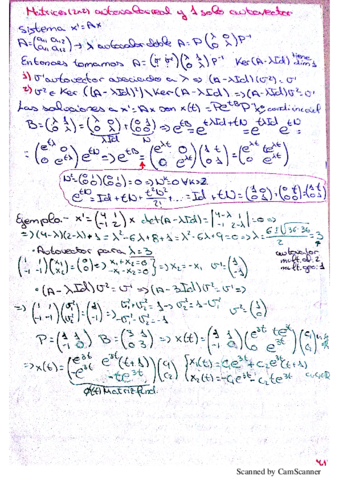 Matrices (2x2) autovalor real y 1 solo autovector
Sistema x'=Ax
A=(a₁₁ a₁₂ / a₂₁ a₂₂) → λ autovalor doble A=P(λ 0 / 0 λ)P⁻¹
Entonces tomamos Ker(A-λId) tiene dim 1
1) v¹ autovector asociado a λ ⇒ (A-λId)(v²)=v¹
2) v² ∈ Ker((A-λId)²)\Ker(A-λId) ⇒ (A-λId)v²=v¹
Las soluciones a x'=Ax son x(t)=Pe^{tB}P⁻¹x⁰ condición inicial
B=(λ 1 / 0 λ)=(λ 0 / 0 λ)+(0 1 / 0 0) ⇒ e^{tB}=e^{tλId+tN}=e^{tλId}e^{tN}=
=(e^{tλ} 0 / 0 e^{tλ})e^{tN} ⇒ e^{tB}=(e^{λt} 0 / 0 e^{λt})(1 t / 0 1)=(e^{λt} te^{λt} / 0 e^{λt})
N²=(0 1 / 0 0)(0 1 / 0 0)=0 ⇒ Nᵏ=0 ∀k≥2
e^{tN}=Id+tN+ +...=Id+tN=(1 0 / 0 1)+(0 t / 0 0)=(1 t / 0 1)
Ejemplo.- x'=(4 1 / -1 2)x det(A-λId)=|4-λ 1 / -1 2-λ|=0 ⇒
⇒(4-λ)(2-λ)+1=λ²-6λ+8+1=λ²-6λ+9=0 ⇒ λ=(6±√36-36)/2=3
- Autovector para λ=3 autovalor
(1 1 / -1 -1)(x₁ / x₂)=(0 / 0) ⇒ x₁+x₂=0 / -x₁-x₂=0 ⇒ x₂=-x₁ v¹=(1 / -1) mult. al. 2
mult. geo. 1
- (A-λId)v²=v¹ ⇒ (A-3Id)v²=v¹ ⇒
⇒ (1 1 / -1 -1)(v₁² / v₂²)=(1 / -1) ⇒ v₁²+v₂²=1 → v₂²=1-v₁² / -v₁²-v₂²=-1 v²=(1 / 0)
P=(1 1 / -1 0) B=(3 1 / 0 3) ⇒ x(t)=(1 1 / -1 0)(e^{3t} te^{3t} / 0 e^{3t})(c₁ / c₂)
⇒x(t)=(e^{3t} e^{3t}(t+1) / -e^{3t} -te^{3t})(c₁ / c₂) {x₁(t)=c₁e^{3t}+c₂e^{3t}(t+1) / x₂(t)=-c₁e^{3t}-c₂te^{3t}
ϕ(t) Matriz fund.
Scanned by CamScanner